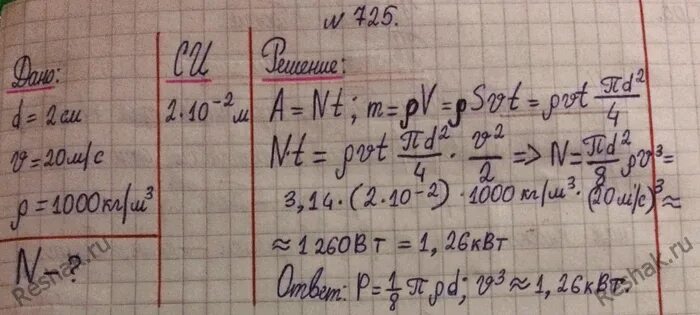 № 725.
Дано:
d = 2 см
υ = 20 м/с
ρ = 1000 кг/м³
N - ?
СИ
2·10⁻² м
Решение:
A = Nt; m = ρV = ρSυt = ρυt πd²/4
N·t = ρυt πd²/4 · υ²/2 => N = πd²/8 ρυ³ =
3,14·(2·10⁻²)·1000 кг/м³·(20 м/с)³ ≈
≈ 1260 Вт = 1,26 кВт
Ответ: P = 1/8 πρd; υ³ ≈ 1,26 кВт.
Reshak.ru
Reshak.ru